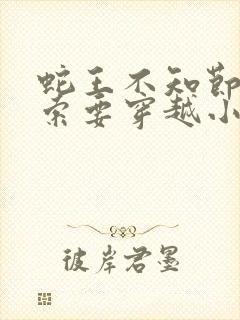 蛇王不知节
索要穿越小
彼岸君墨